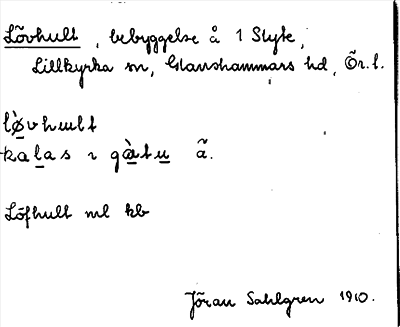 Lövhult, bebyggelse å 1 Slyte,
Lillkyrka sn, Glanshammars hd, Ör. l.
lø̀vhult
kalas ı gàtu ã.
Löfhult ml kb
Jöran Sahlgren 1910.